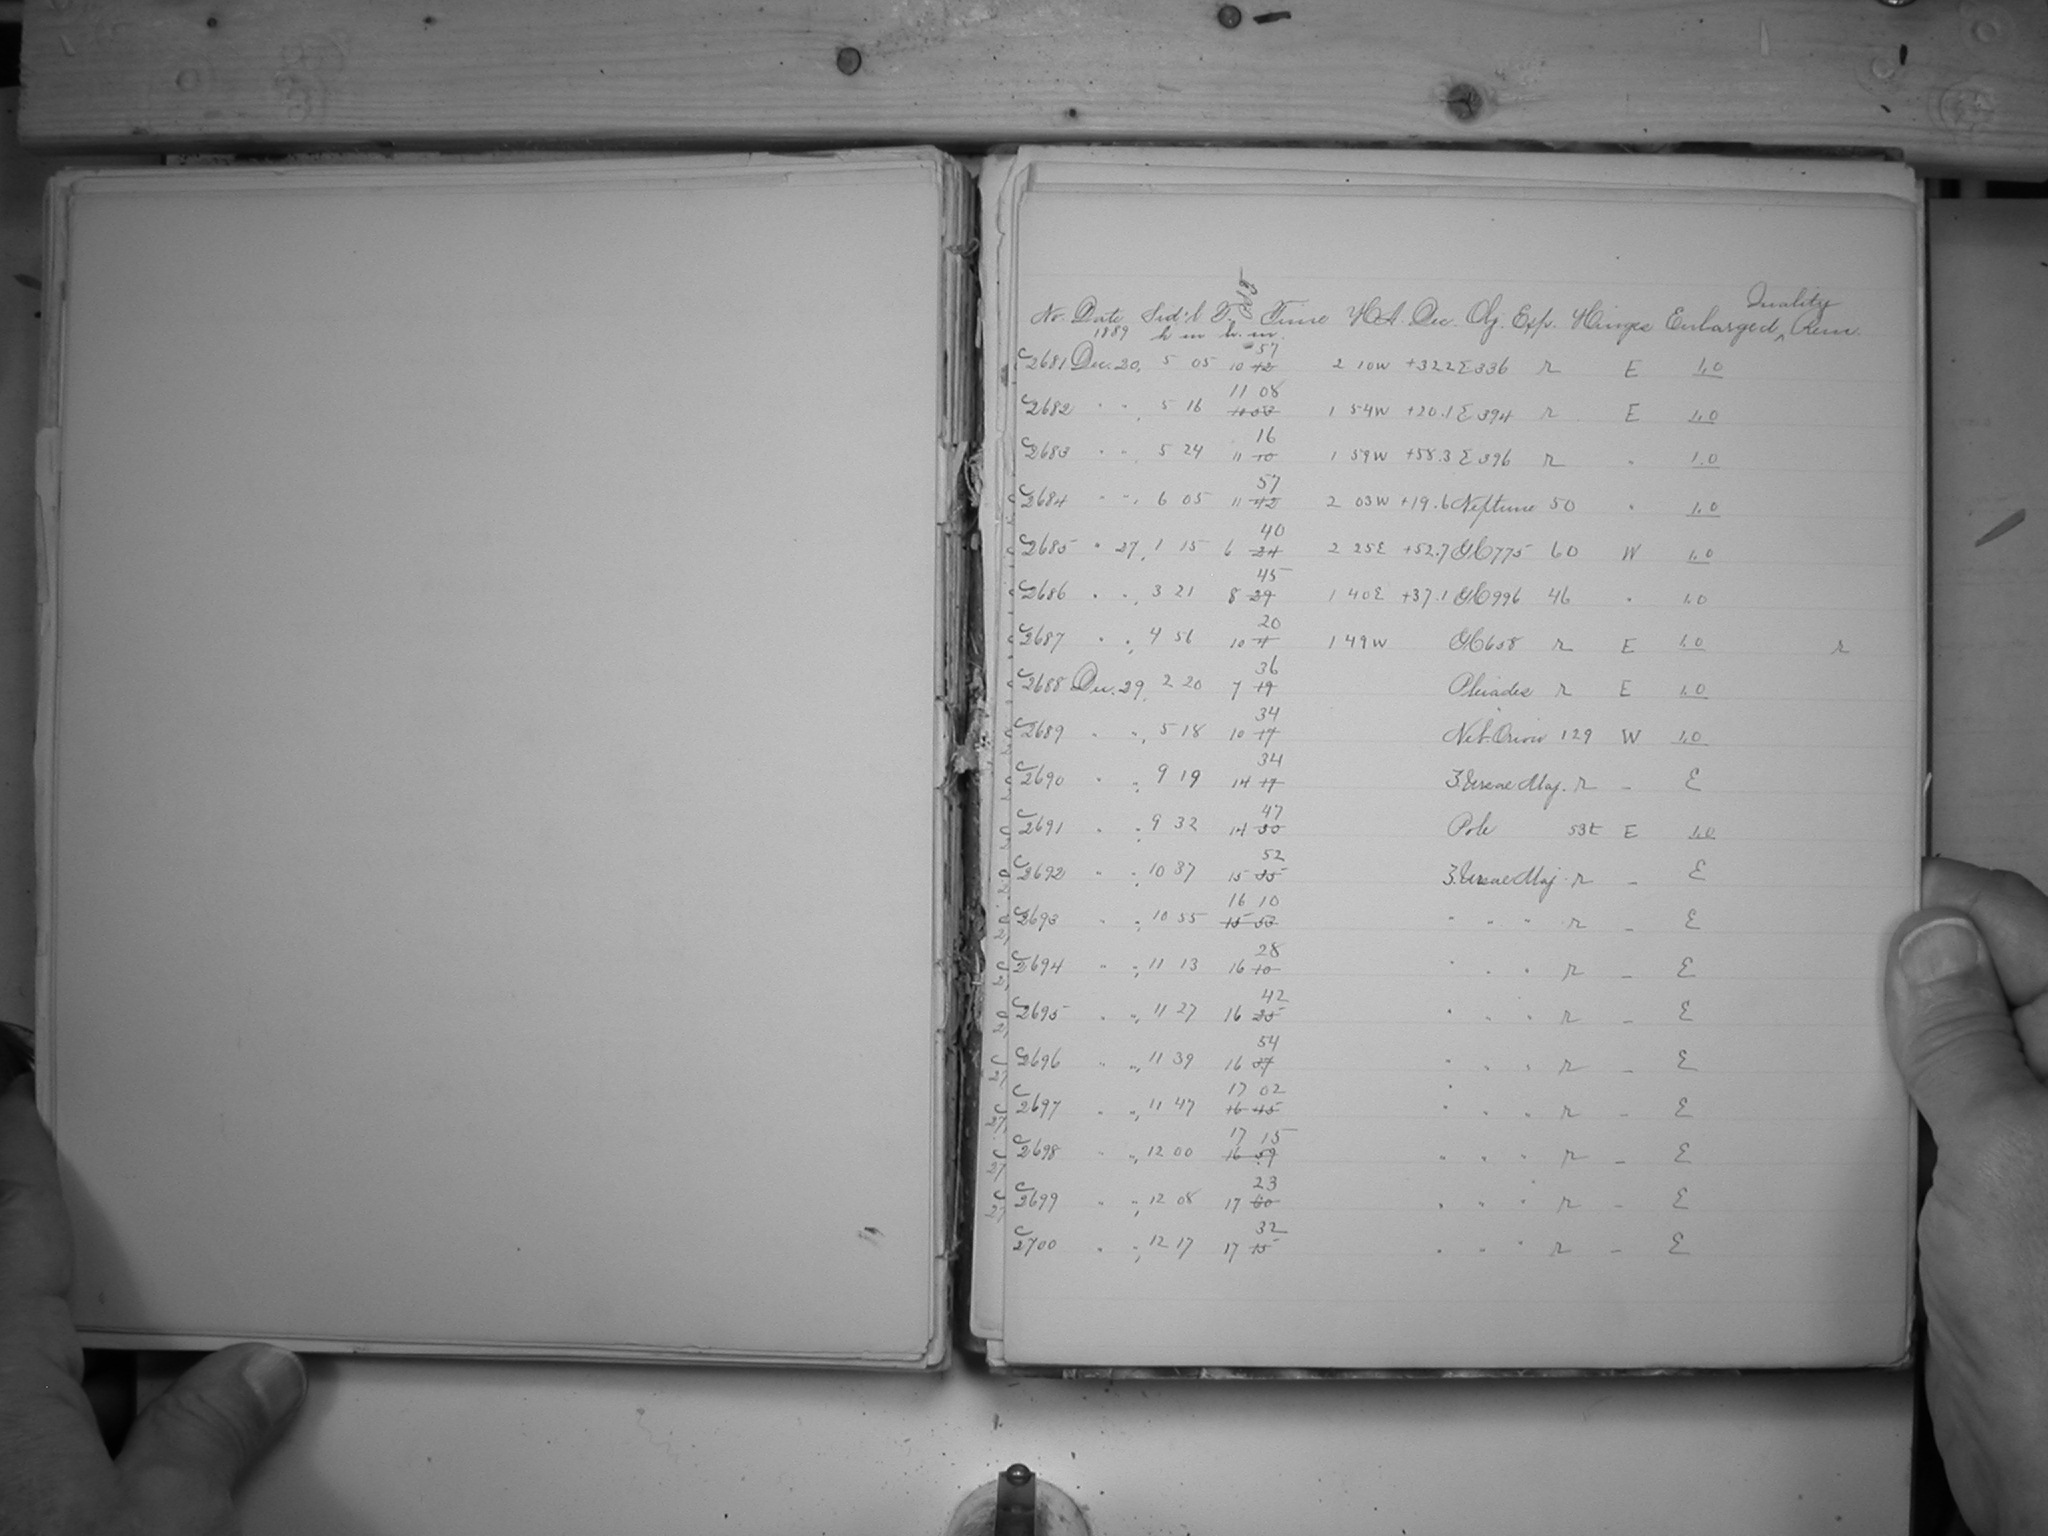 Quality
No. Date Sid'l T. Time H.A. Dec. Obj. Exp. Hinges Enlarged, Rem.
1889 h m h. m.
57
C2681 Dec. 20, 5 05 10 42 2 10W +32.2 Σ336 r E 1.0
11 08
C2682 " ", 5 16 10 53 1 54W +20.1 Σ394 r E 1.0
16
C2683 " ", 5 24 11 10 1 59W +58.3 Σ396 r " 1.0
57
C2684 " ", 6 05 11 42 2 03W +19.6 Neptune 50 " 1.0
40
C2685 " 27, 1 15 6 24 2 25E +52.7 GC775 60 W 1.0
45
C2686 " ", 3 21 8 29 1 40E +37.1 GC996 46 " 1.0
20
C2687 " ", 4 56 10 4 1 49W GC658 r E 1.0 r
36
C2688 Dec. 29, 2 20 7 19 Pleiades r E 1.0
34
C2689 " ", 5 18 10 17 Neb. Orion 129 W 1.0
34
C2690 " ", 9 19 14 17 ζ Ursae Maj. r - E
47
C2691 " ", 9 32 14 30 Pole 53t E 1.0
52
C2692 " ", 10 37 15 35 ζ Ursae Maj. r - E
16 10
C2693 " ", 10 55 15 53 " " " r - E
28
C2694 " ", 11 13 16 10 " " " r - E
42
C2695 " ", 11 27 16 25 " " " r - E
54
C2696 " ", 11 39 16 37 " " " r - E
17 02
C2697 " ", 11 47 16 45 " " " r - E
17 15
C2698 " ", 12 00 16 59 " " " r - E
23
C2699 " ", 12 08 17 60 " " " r - E
32
C2700 " ", 12 17 17 15 " " " r - E